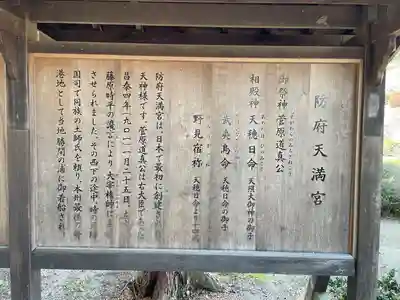 防府天満宮
御祭神 菅原道真公
相殿神 天穂日命 天照大御神の御子
武夷鳥命 天穂日命の御子
野見宿祢 天穂日命より十四
防府天満宮は、日本で最初に創建
天神様です。菅原道真公は右大臣で
昌泰四年（九〇一）一月二十五日、
藤原時平の讒言により大宰権帥に
させられました。その西下の途中、時の
国司で同族の土師氏を頼り、本州最後の
港地として当地勝間の浦に御着船され